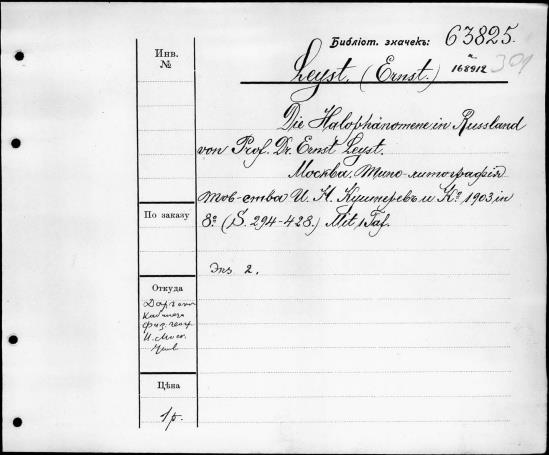 Библіот. значекъ: 63825.
Инв.
№
и
168912
301
Leyst. (Ernst.)
Die Halophänomene in Russland
von Prof. Dr. Ernst Leyst.
Москва. Типо-литографія
тов-ства И. Н. Кушнеревъ и Ко. 1903 in
8o. (S. 294-428.) Mit 1 Taf.
По заказу
Экз 2.
Откуда
Кабинета
И. Моск.
Унив
Цѣна
1р.